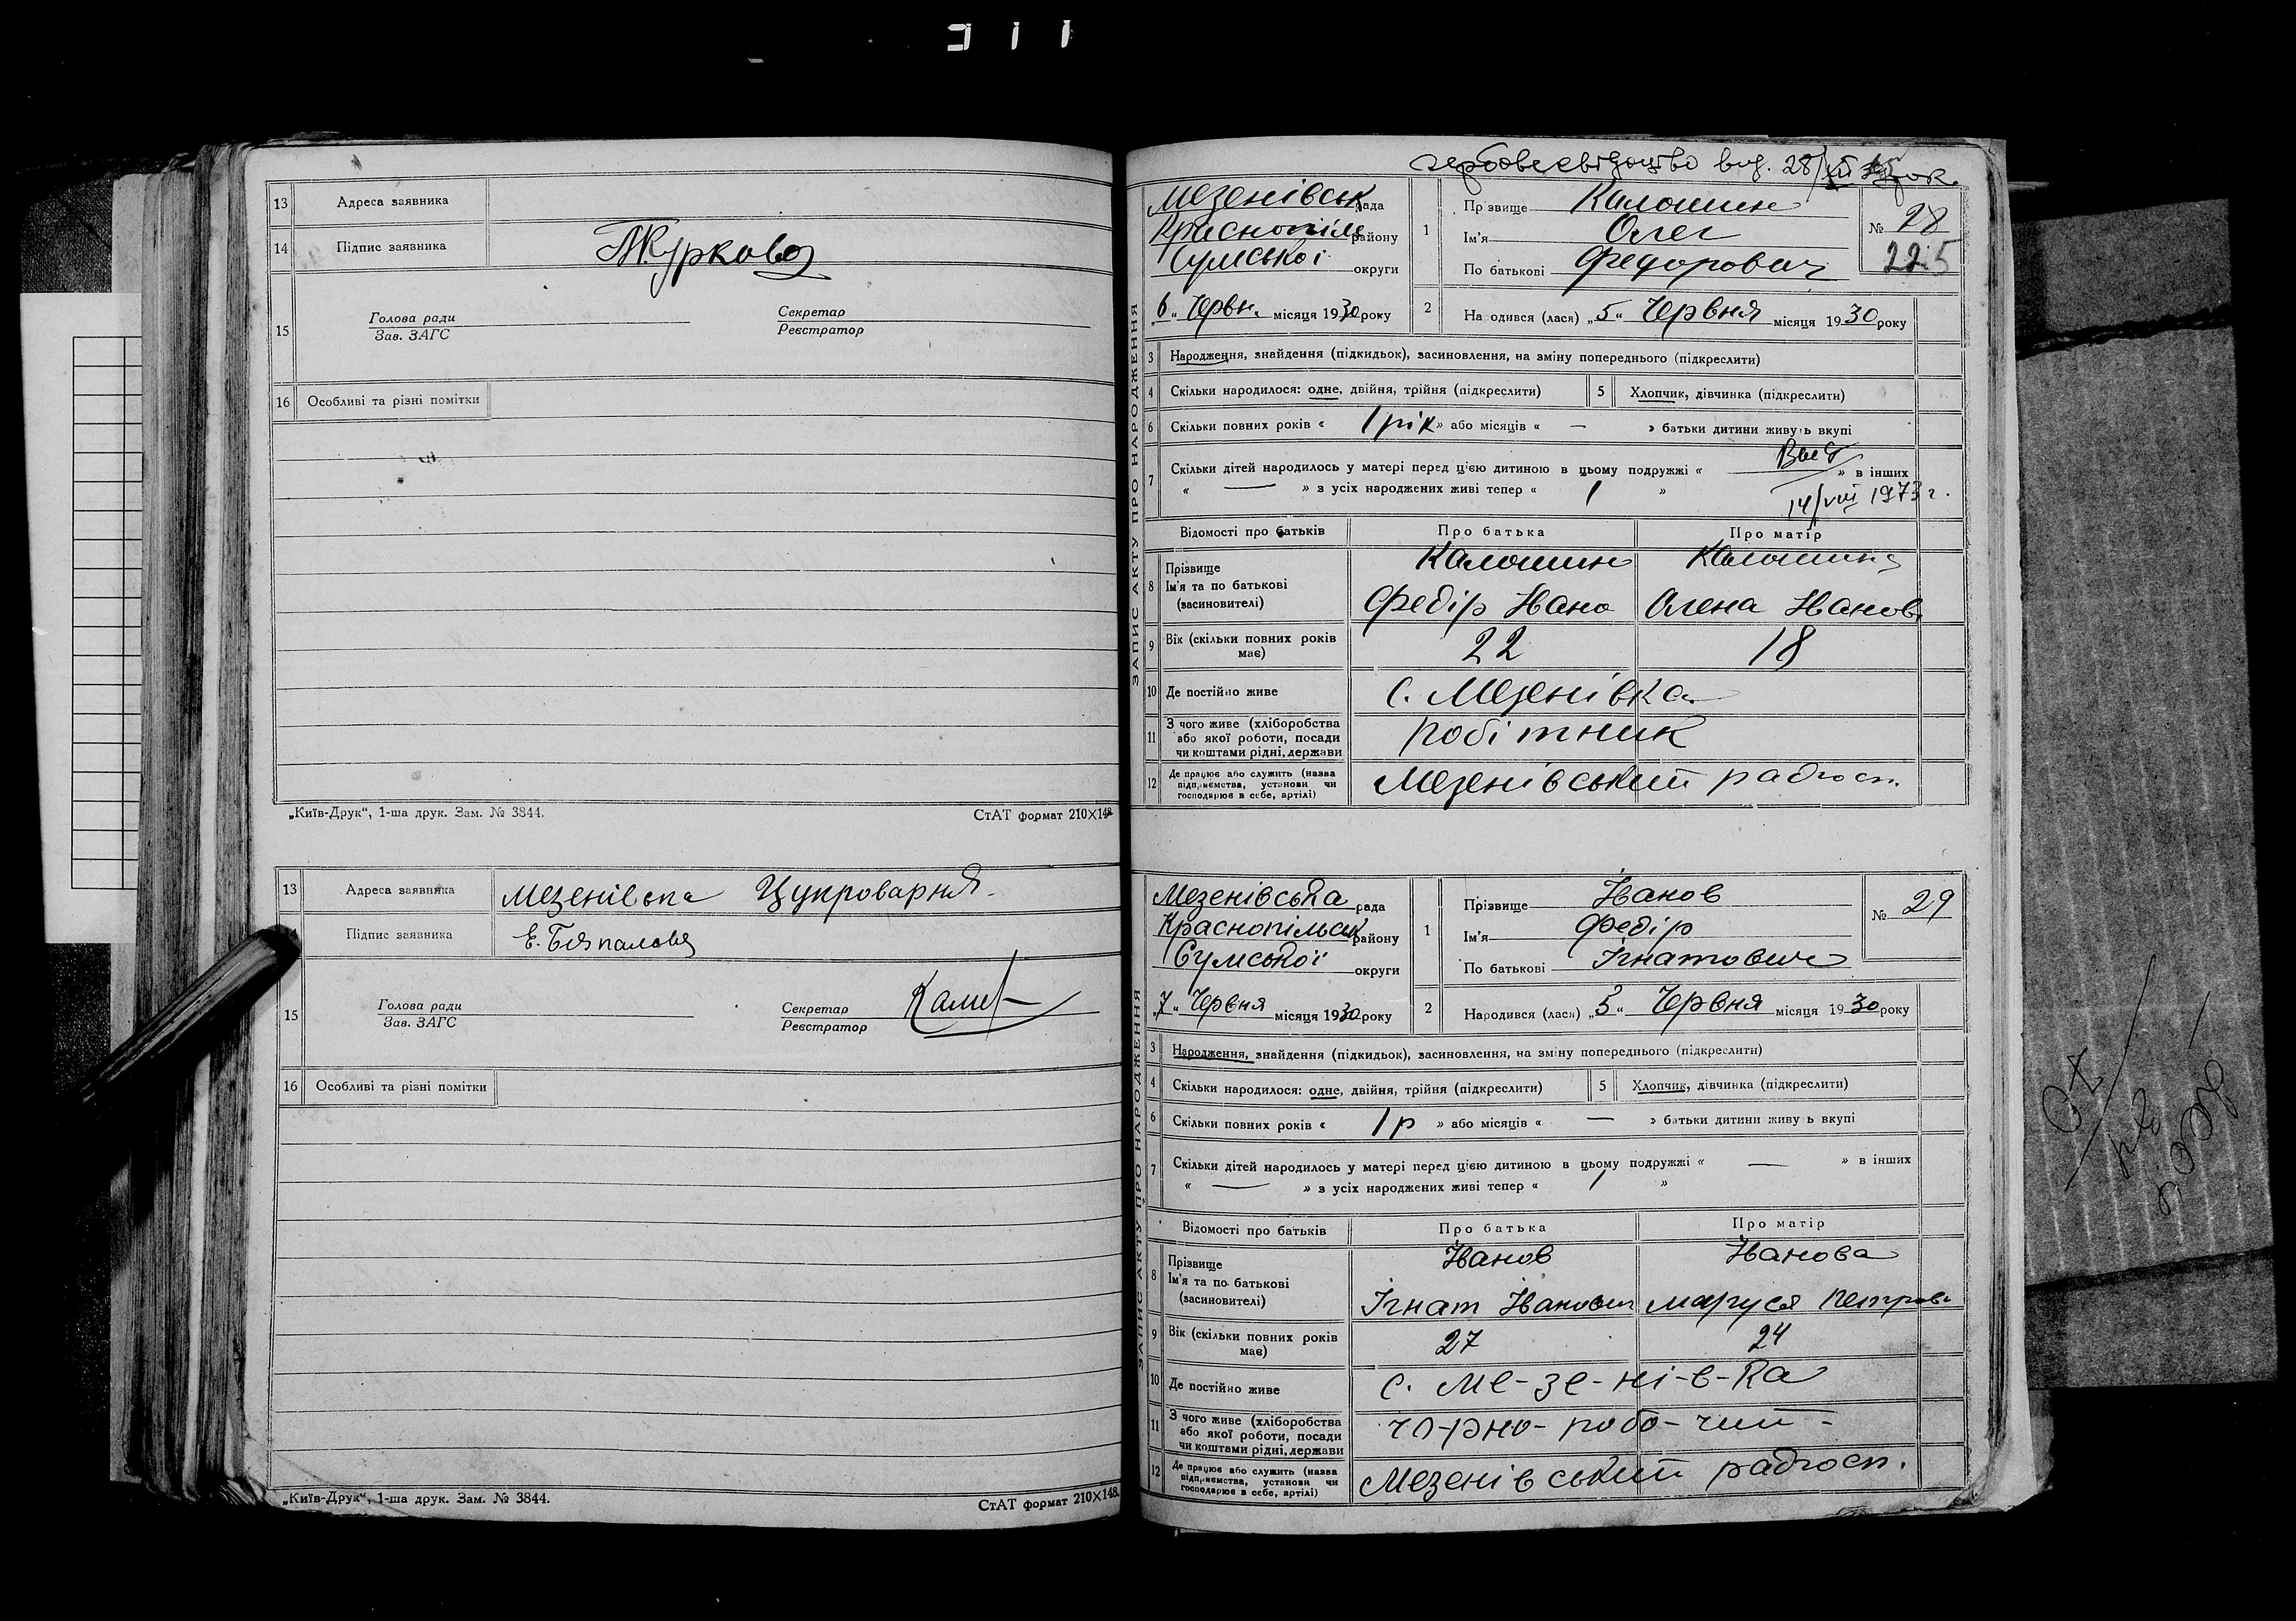 311
13 Адреса заявника
14 Підпис заявника Журкова
15 Голова ради Секретар
Зав. ЗАГС Реєстратор
16 Особливі та різні помітки
„Київ-Друк“, 1-ша друк. Зам. № 3844. СтАТ формат 210×148
13 Адреса заявника Мезенівська Цукроварня
Підпис заявника
15 Голова ради Секретар
Зав. ЗАГС Реєстратор
16 Особливі та різні помітки
„Київ-Друк“, 1-ша друк. Зам. № 3844. СтАТ формат 210×148.
вид. 28/
ЗАПИС АКТУ ПРО НАРОДЖЕННЯ
Мезенівськ рада
Краснопіль району
Сумської округи
„6“ Червн. місяця 1930 року
1 Прізвище Калошин
Ім'я Олег
По батькові Федорович
№ 28
225
2 Народився (лася) „5“ Червня місяця 1930 року
3 Народження, знайдення (підкидьок), засиновлення, на зміну попереднього (підкреслити)
4 Скільки народилося: одне, двійня, трійня (підкреслити) 5 Хлопчик, дівчинка (підкреслити)
6 Скільки повних років « 1 рік » або місяців « — » батьки дитини живуть вкупі
7 Скільки дітей народилось у матері перед цією дитиною в цьому подружжі « » в інших
« — » з усіх народжених живі тепер « 1 »
14/VIII 1973 г.
Відомості про батьків Про батька Про матір
8 Прізвище Калошин Калошина
Ім'я та по батькові
(засиновителі) Федір Івано Олена Іванов.
9 Вік (скільки повних років має) 22 18
10 Де постійно живе с. Мезенівка
11 З чого живе (хліборобства або якої роботи, посади чи коштами рідні, держави робітник
12 Де працює або служить (назва підприємства, установи чи господарює в себе, артілі) Мезенівський радгосп.
ЗАПИС АКТУ ПРО НАРОДЖЕННЯ
Мезенівська рада
Краснопільськ району
Сумської округи
„7“ Червня місяця 1930 року
1 Прізвище Іванов
Ім'я Федір
По батькові Ігнатович
№ 29
2 Народився (лася) „5“ Червня місяця 1930 року
3 Народження, знайдення (підкидьок), засиновлення, на зміну попереднього (підкреслити)
4 Скільки народилося: одне, двійня, трійня (підкреслити) 5 Хлопчик, дівчинка (підкреслити)
6 Скільки повних років « 1 р » або місяців « — » батьки дитини живу ь вкупі
7 Скільки дітей народилось у матері перед цією дитиною в цьому подружжі « — » в інших
« — » з усіх народжених живі тепер « 1 »
Відомості про батьків Про батька Про матір
8 Прізвище Іванов Іванова
Ім'я та по батькові
(засиновителі) Ігнат Іванович Маруся Петров
9 Вік (скільки повних років має) 27 24
10 Де постійно живе с. Ме-зе-ні-в-ка
11 З чого живе (хліборобства або якої роботи, посади чи коштами рідні, держави чо-рно-робо-чий-
12 Де працює або служить (назва підприємства, установи чи господарює в себе, артілі) Мезенівський радгосп.